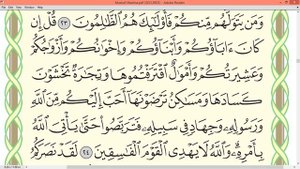 (SECURED) - Adobe Reader
وَمَن يَتَوَلَّهُم مِّنكُمْ فَأُو۟لَٰٓئِكَ هُمُ ٱلظَّٰلِمُونَ ٢٣ قُلْ إِن
كَانَ ءَابَآؤُكُمْ وَأَبْنَآؤُكُمْ وَإِخْوَٰنُكُمْ وَأَزْوَٰجُكُمْ
وَعَشِيرَتُكُمْ وَأَمْوَٰلٌ ٱقْتَرَفْتُمُوهَا وَتِجَٰرَةٌ تَخْشَوْنَ
كَسَادَهَا وَمَسَٰكِنُ تَرْضَوْنَهَآ أَحَبَّ إِلَيْكُم مِّنَ ٱللَّهِ
وَرَسُولِهِۦ وَجِهَادٍ فِى سَبِيلِهِۦ فَتَرَبَّصُوا۟ حَتَّىٰ يَأْتِىَ ٱللَّهُ
بِأَمْرِهِۦ وَٱللَّهُ لَا يَهْدِى ٱلْقَوْمَ ٱلْفَٰسِقِينَ ٢٤ لَقَدْ نَصَرَكُمُ